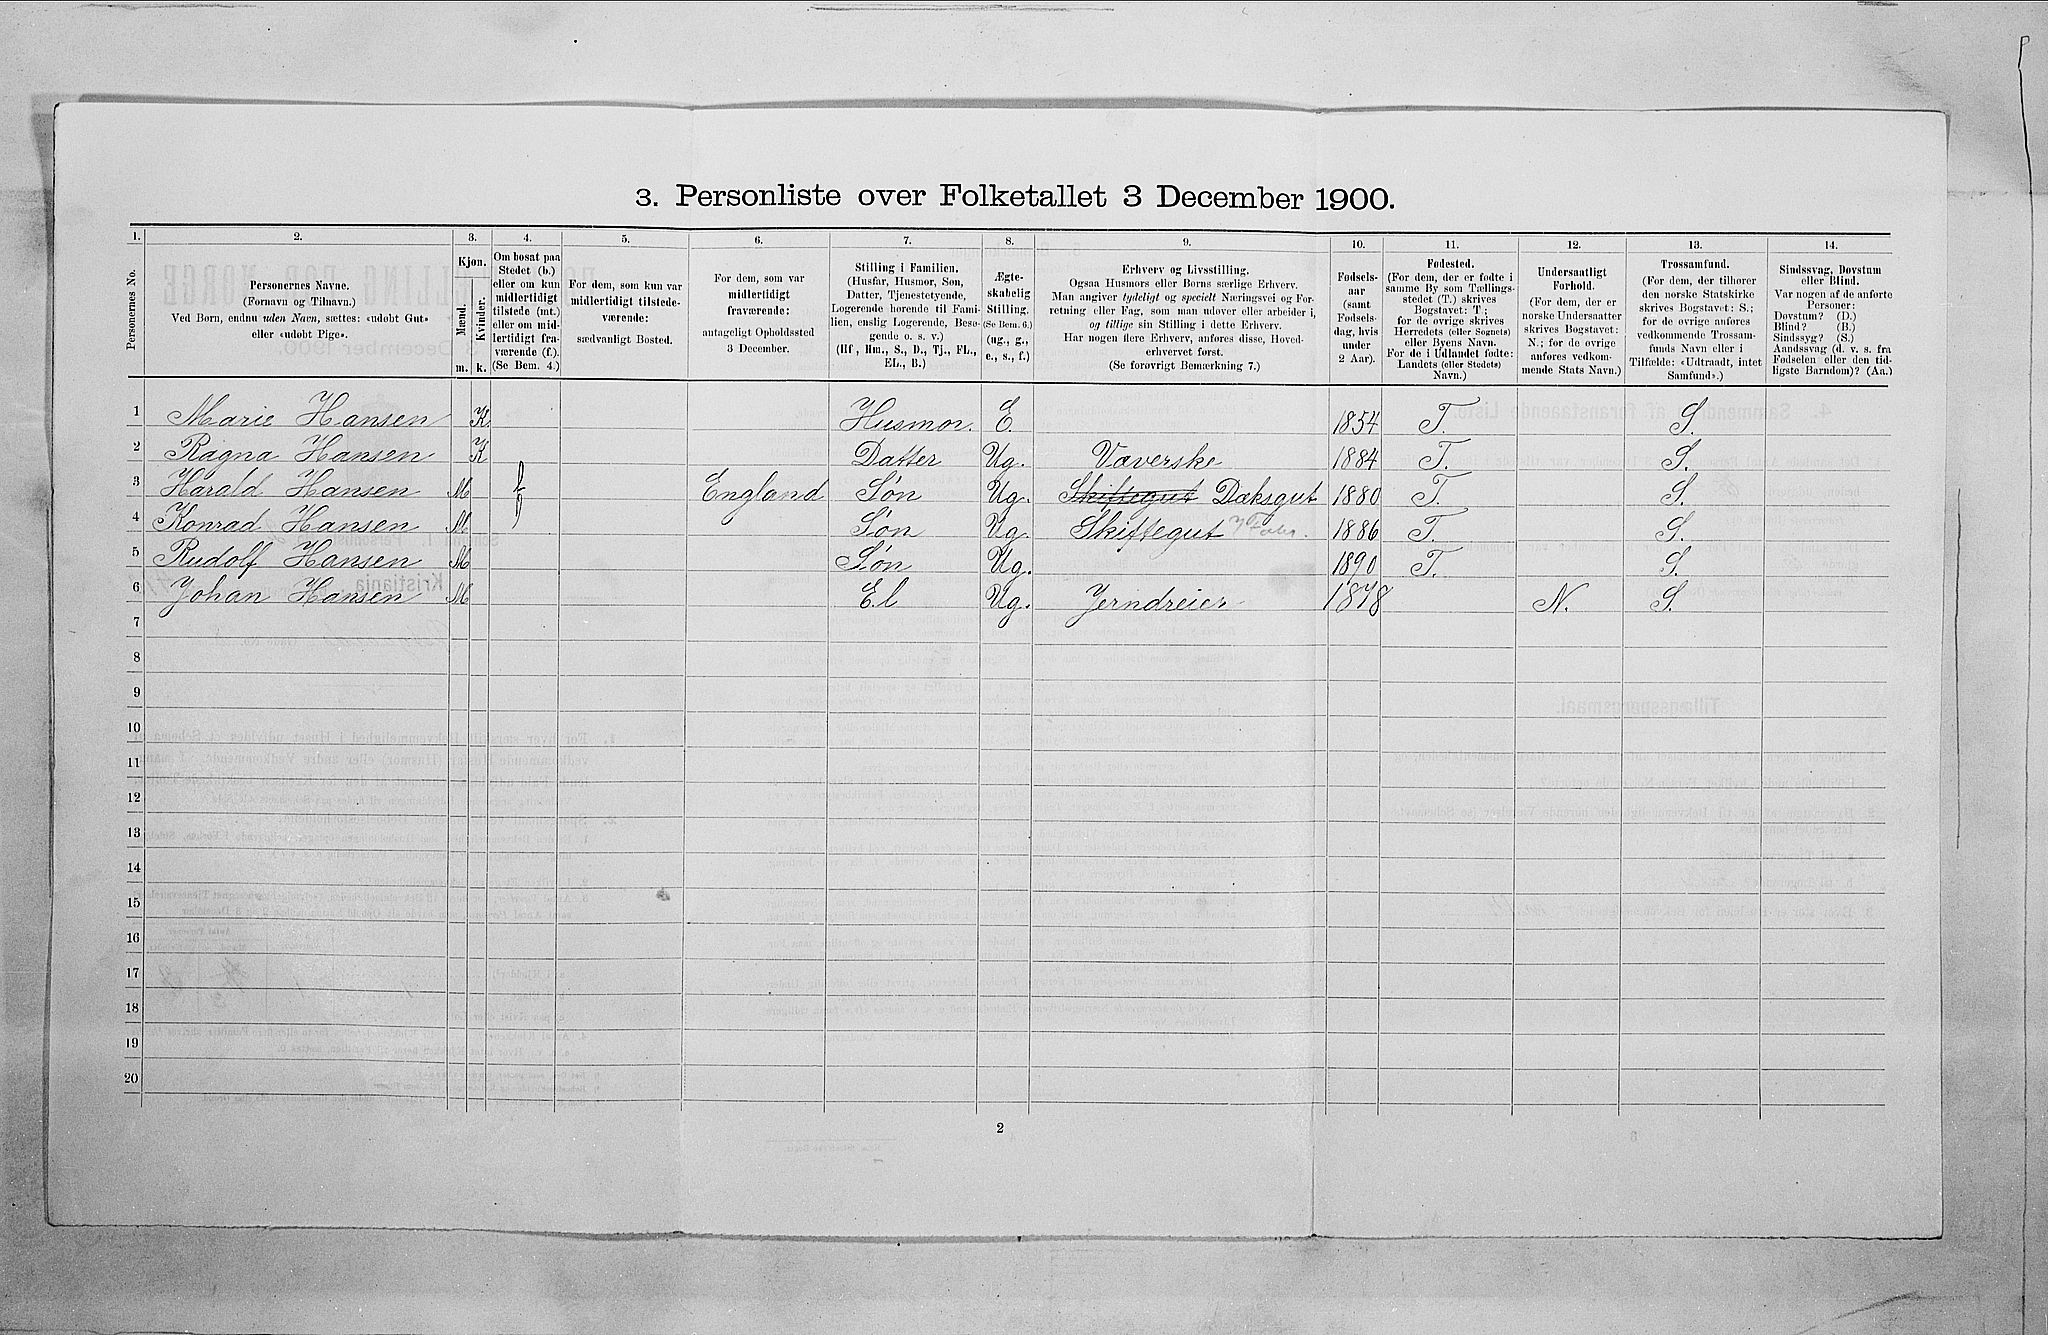 3. Personliste over Folketallet 3 December 1900.
1. 2. 3. 4. 5. 6. 7. 8. 9. 10. 11. 12. 13. 14.
Personernes No.
Personernes Navne.
(Fornavn og Tilnavn.)
Ved Børn, endnu uden Navn, sættes: «udøbt Gut»
eller «udøbt Pige».
Kjøn.
Mænd.
Kvinder.
m. k.
Om bosat paa
Stedet (b.)
eller om kun
midlertidigt
tilstede (mt.)
eller om mid-
lertidigt fra-
værende (f.).
(Se Bem. 4.)
For dem, som kun var
midlertidigt tilstede-
værende:
sædvanligt Bosted.
For dem, som var
midlertidigt
fraværende:
antageligt Opholdssted
3 December.
Stilling i Familien.
(Husfar, Husmor, Søn,
Datter, Tjenestetyende,
Logerende hørende til Fami-
lien, enslig Logerende, Besø-
gende o. s. v.)
(Hf, Hm., S., D., Tj., FL.,
EL., B.)
Ægte-
skabelig
Stilling.
(Se Bem. 6.)
(ug., g.,
e., s., f.)
Erhverv og Livsstilling.
Ogsaa Husmors eller Børns særlige Erhverv.
Man angiver tydeligt og specielt Næringsvei og For-
retning eller Fag, som man udøver eller arbeider i,
og tillige sin Stilling i dette Erhverv.
Har nogen flere Erhverv, anføres disse, Hoved-
erhvervet først.
(Se forøvrigt Bemærkning 7.)
Fødsels-
aar
(samt
Fødsels-
dag, hvis
under
2 Aar).
Fødested.
(For dem, der er fødte i
samme By som Tællings-
stedet (T.) skrives
Bogstavet: T;
for de øvrige skrives
Herredets (eller Sognets)
eller Byens Navn.
For de i Udlandet fødte:
Landets (eller Stedets)
Navn.)
Undersaatligt
Forhold.
(For dem, der er
norske Undersaatter
skrives Bogstavet:
N.; for de øvrige
anføres vedkom-
mende Stats Navn.)
Trossamfund.
(For dem, der tilhører
den norske Statskirke
skrives Bogstavet: S.;
for de øvrige anføres
vedkommende Trossam-
funds Navn eller i
Tilfælde: «Udtraadt, intet
Samfund».)
Sindssvag, Døvstum
eller Blind.
Var nogen af de anførte
Personer:
Døvstum? (D.)
Blind? (B.)
Sindssyg? (S.)
Aandssvag (d. v. s. fra
Fødselen eller den tid-
ligste Barndom)? (Aa.)
1 Marie Hansen K. Husmor. E. 1854 T. S.
2 Ragna Hansen K Datter Ug. Væverske 1884 T. S.
3 Harald Hansen M f England Søn Ug. Skiftegut Dæksgut 1880 T. S.
4 Konrad Hansen M Søn Ug. Skiftegut 1886 T. S.
5 Rudolf Hansen M Søn Ug. 1890 T. S.
6 Johan Hansen M El Ug. Jerndreier 1878 N. S.
7
8
9
10
11
12
13
14
15
16
17
18
19
20
2